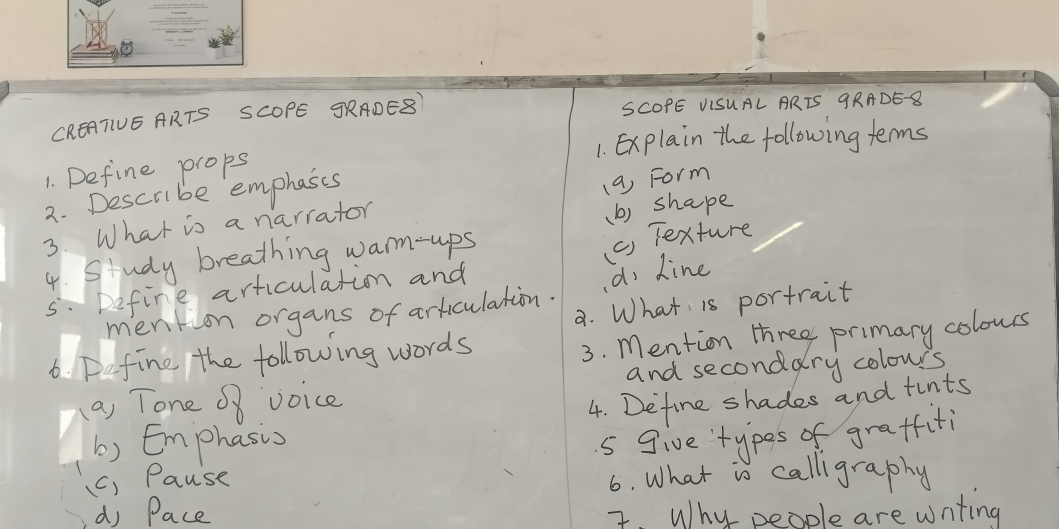 CREATIVE ARTS SCOPE GRADE8
1. Define props
2. Describe emphasis
3. What is a narrator
4. Study breathing warm-ups
5. Define articulation and
mention organs of articulation.
6. Define the following words
(a) Tone of voice
b) Emphasis
(c) Pause
d) Pace
SCOPE VISUAL ARTS GRADE-8
1. Explain the following terms
(a) Form
(b) shape
(c) Texture
(d) Line
2. What is portrait
3. Mention three primary colours
and secondary colours
4. Define shades and tints
5 Give types of graffiti
6. What is calligraphy
7. Why people are writing